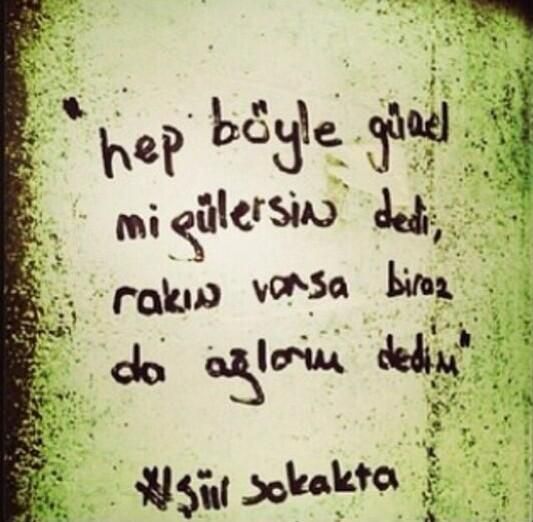 "hep böyle güzel
mi gülersin dedi,
rakın varsa biraz
da ağlarım dedim"
#şiir sokakta